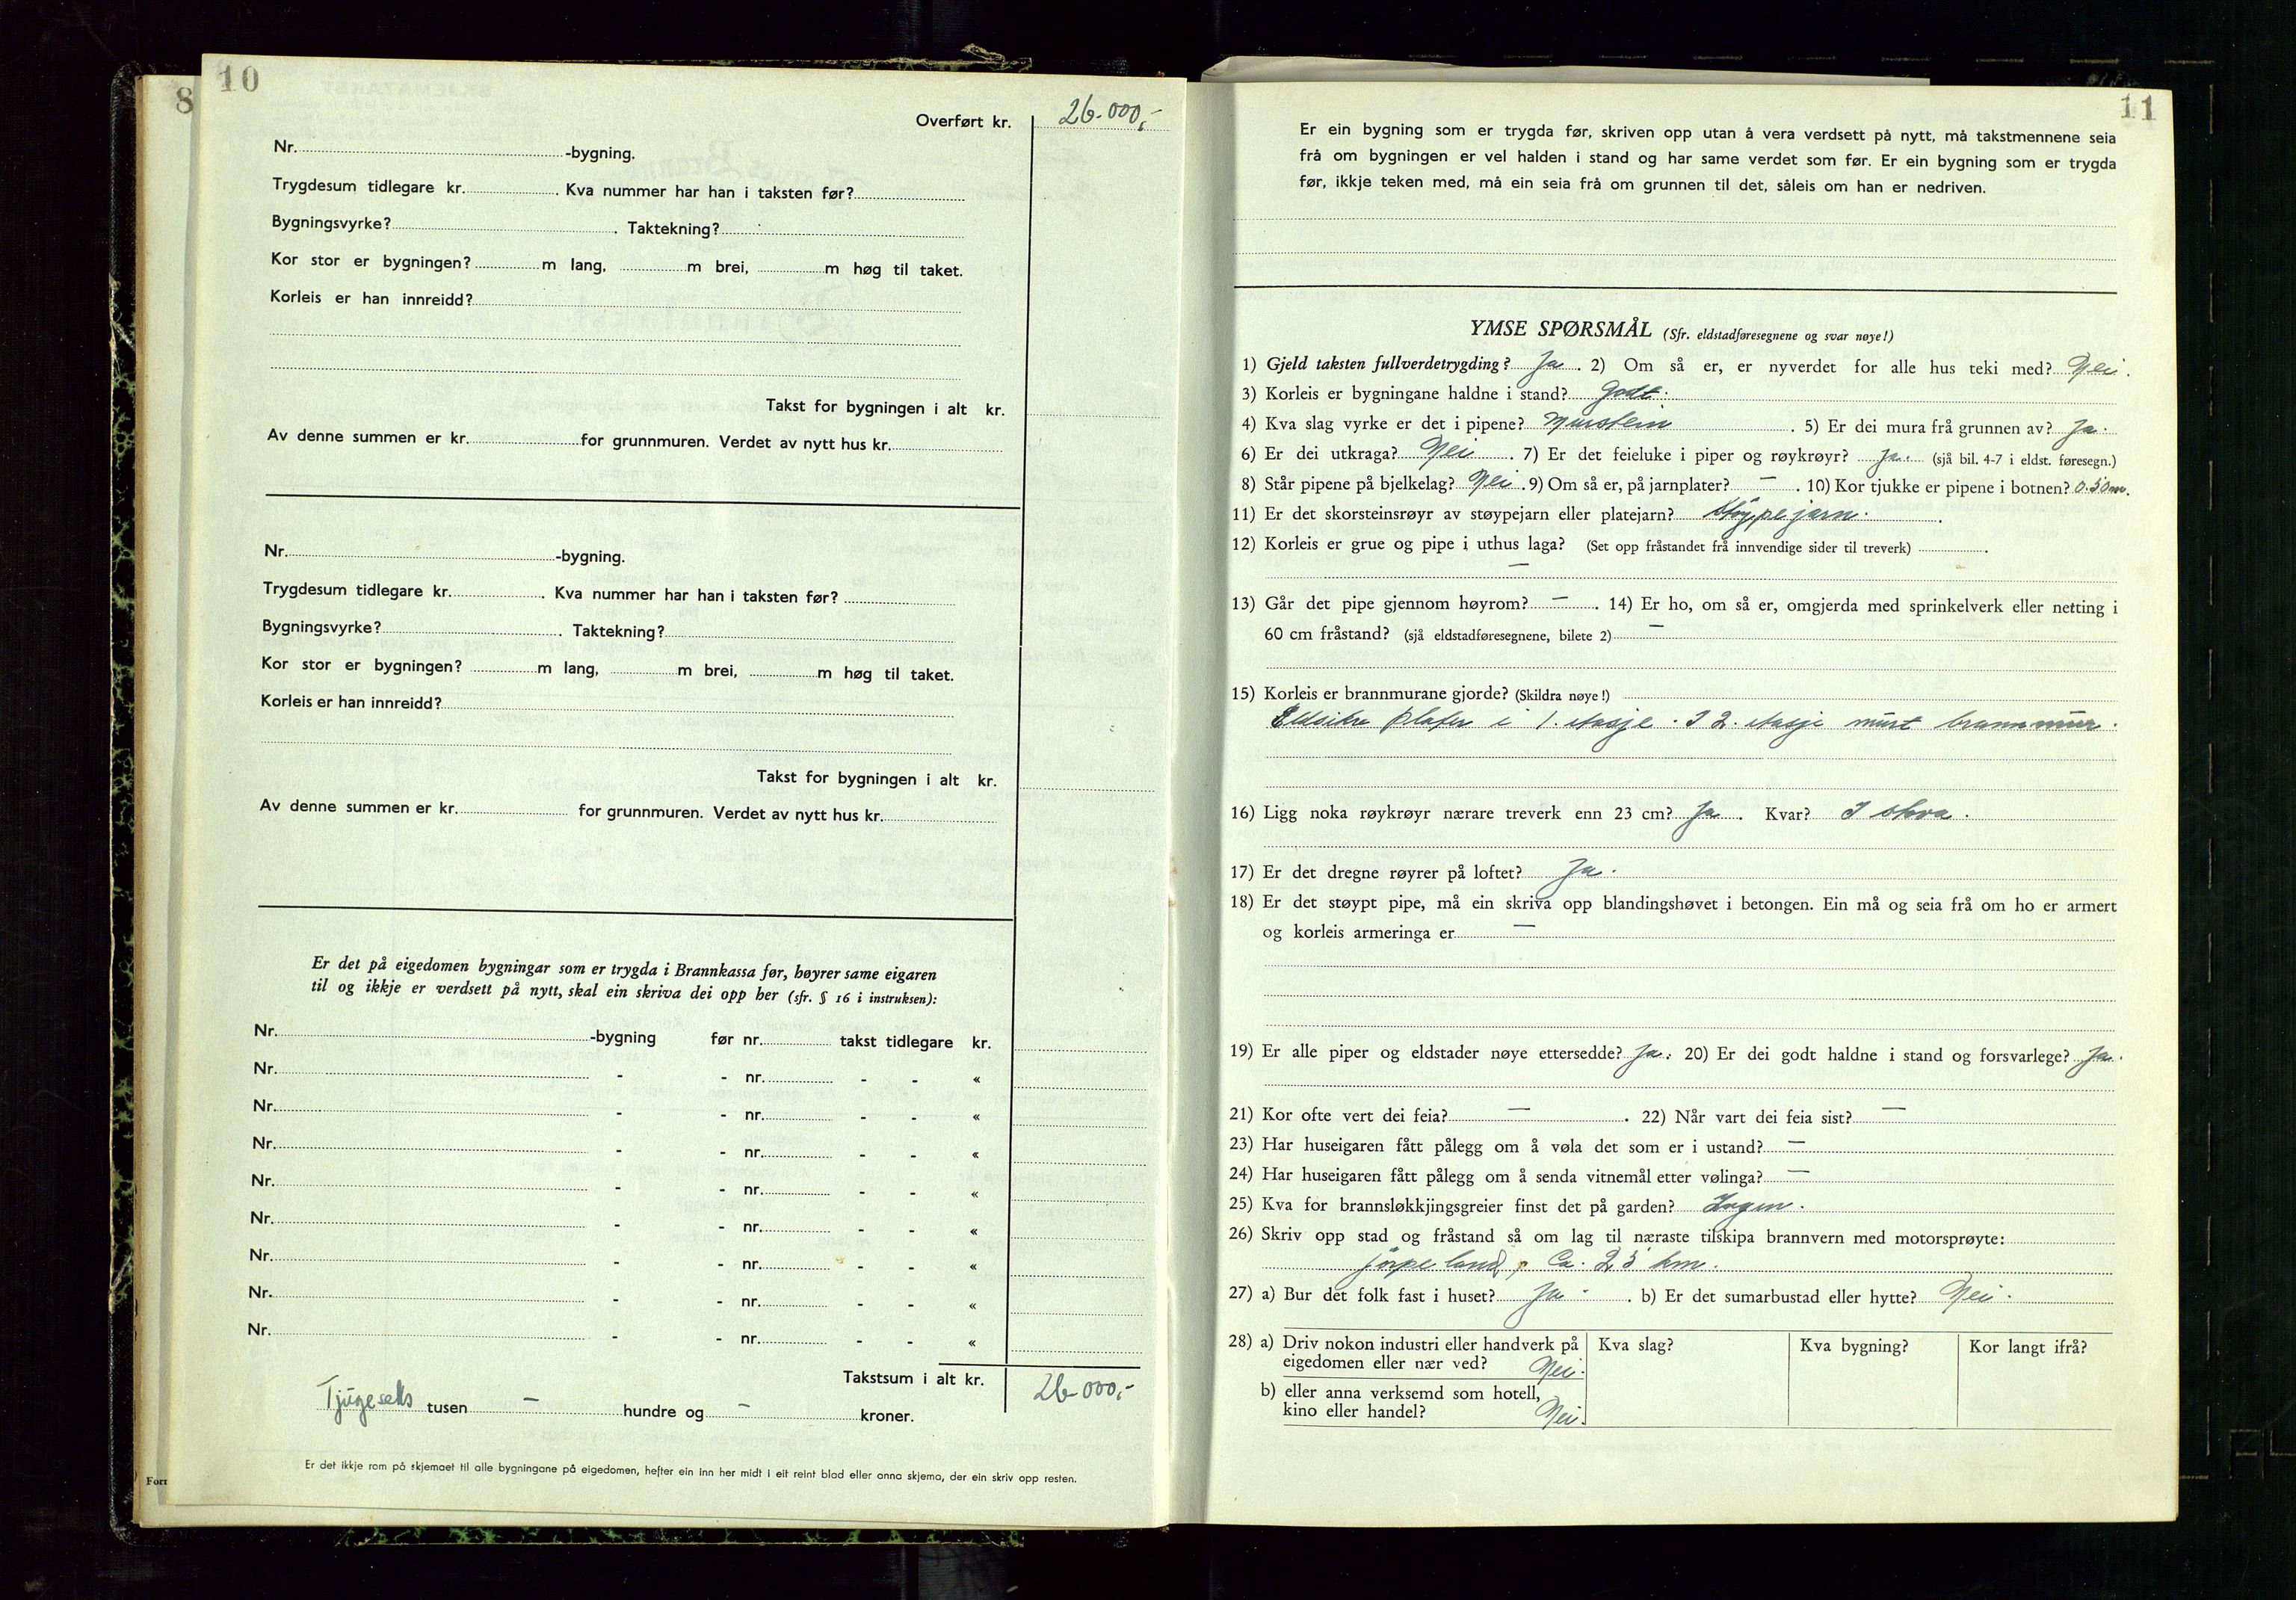 8
10
Overført kr. 26.000,-
Nr. -bygning.
Trygdesum tidlegare kr. . Kva nummer har han i taksten før?
Bygningsvyrke? . Taktekning?
Kor stor er bygningen? m lang, m brei, m høg til taket.
Korleis er han innreidd?
Takst for bygningen i alt kr.
Av denne summen er kr. for grunnmuren. Verdet av nytt hus kr.
Nr. -bygning.
Trygdesum tidlegare kr. . Kva nummer har han i taksten før?
Bygningsvyrke? . Taktekning?
Kor stor er bygningen? m lang, m brei, m høg til taket.
Korleis er han innreidd?
Takst for bygningen i alt kr.
Av denne summen er kr. for grunnmuren. Verdet av nytt hus kr.
Er det på eigedomen bygningar som er trygda i Brannkassa før, høyrer same eigaren
til og ikkje er verdsett på nytt, skal ein skriva dei opp her (sfr. § 16 i instruksen):
Nr. -bygning før nr. takst tidlegare kr.
Nr. - - nr. - - «
Nr. - - nr. - - «
Nr. - - nr. - - «
Nr. - - nr. - - «
Nr. - - nr. - - «
Nr. - - nr. - - «
Nr. - - nr. - - «
Nr. - - nr. - - «
Takstsum i alt kr. 26.000,-
Tjugeseks tusen — hundre og — kroner.
Er det ikkje rom på skjemaet til alle bygningane på eigedomen, hefter ein inn her midt i eit reint blad eller anna skjema, der ein skriv opp resten.
11
Er ein bygning som er trygda før, skriven opp utan å vera verdsett på nytt, må takstmennene seia
frå om bygningen er vel halden i stand og har same verdet som før. Er ein bygning som er trygda
før, ikkje teken med, må ein seia frå om grunnen til det, såleis om han er nedriven.
YMSE SPØRSMÅL (Sfr. eldstadføresegnene og svar nøye!)
1) Gjeld taksten fullverdetrygding? Ja . 2) Om så er, er nyverdet for alle hus teki med? Nei .
3) Korleis er bygningane haldne i stand? Godt.
4) Kva slag vyrke er det i pipene? Murstein . 5) Er dei mura frå grunnen av? Ja.
6) Er dei utkraga? Nei . 7) Er det feieluke i piper og røykrøyr? Ja. (sjå bil. 4-7 i eldst. føresegn.)
8) Står pipene på bjelkelag? Nei . 9) Om så er, på jarnplater? — . 10) Kor tjukke er pipene i botnen? 0.50 m.
11) Er det skorsteinsrøyr av støypejarn eller platejarn? Støypejarn. .
12) Korleis er grue og pipe i uthus laga? (Set opp fråstandet frå innvendige sider til treverk) .
—
13) Går det pipe gjennom høyrom? — . 14) Er ho, om så er, omgjerda med sprinkelverk eller netting i
60 cm fråstand? (sjå eldstadføresegnene, bilete 2) —
15) Korleis er brannmurane gjorde? (Skildra nøye!)
Eldsikre plater i 1. etasje. I 2. etasje murt brannmur.
16) Ligg noka røykrøyr nærare treverk enn 23 cm? Ja . Kvar? I stova.
17) Er det dregne røyrer på loftet? Ja.
18) Er det støypt pipe, må ein skriva opp blandingshøvet i betongen. Ein må og seia frå om ho er armert
og korleis armeringa er —
19) Er alle piper og eldstader nøye ettersedde? Ja. 20) Er dei godt haldne i stand og forsvarlege? Ja.
21) Kor ofte vert dei feia? — . 22) Når vart dei feia sist? —
23) Har huseigaren fått pålegg om å vøla det som er i ustand? —
24) Har huseigaren fått pålegg om å senda vitnemål etter vølinga? —
25) Kva for brannsløkkjingsgreier finst det på garden? Ingen.
26) Skriv opp stad og fråstand så om lag til næraste tilskipa brannvern med motorsprøyte:
Jørpeland, Ca. 25 km.
27) a) Bur det folk fast i huset? Ja. . b) Er det sumarbustad eller hytte? Nei.
28) a) Driv nokon industri eller handverk på
eigedomen eller nær ved? Nei.
Kva slag?
Kva bygning?
Kor langt ifrå?
b) eller anna verksemd som hotell,
kino eller handel? Nei.